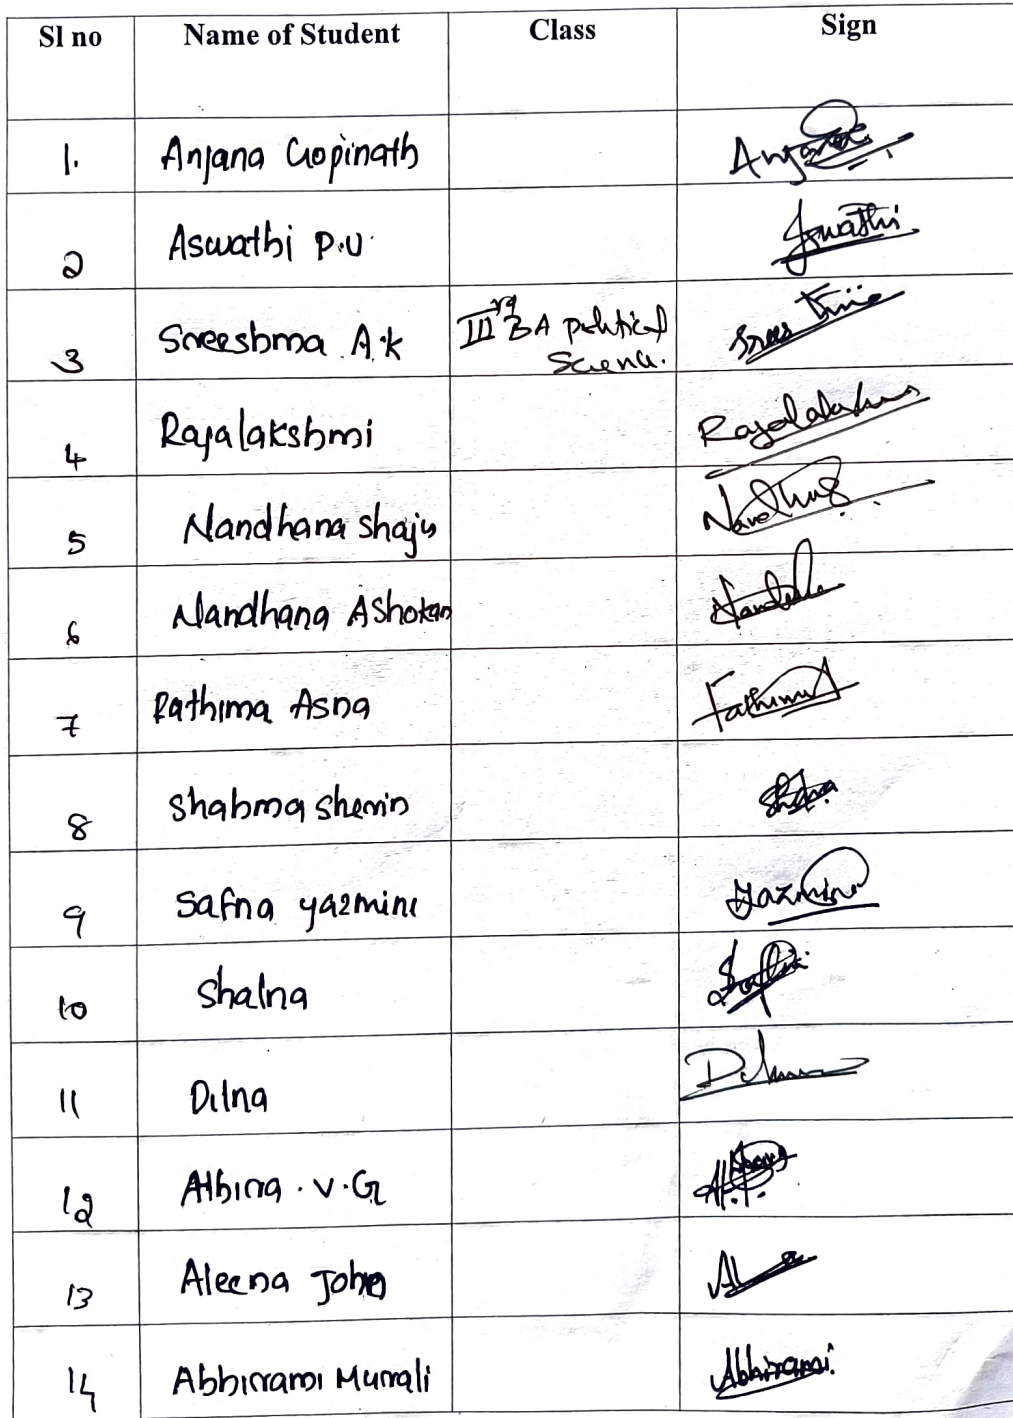 Sl no Name of Student Class Sign
1. Anjana Gopinath Anjana
2 Aswathi P.U Aswathi
3 Sreeshma A.K III rd BA political
Science.
4 Rajalakshmi Rajalakshmi
5 Nandhana Shaju Nandhana
6 Nandhana Ashokan
7 Fathima Asna Fathima
8 Shabma Sherin
9 Safna yazmini Yazmini
10 Shalna
11 Dilna Dilna
12 Albina . V . G
13 Aleena John
14 Abhirami Murali Abhirami